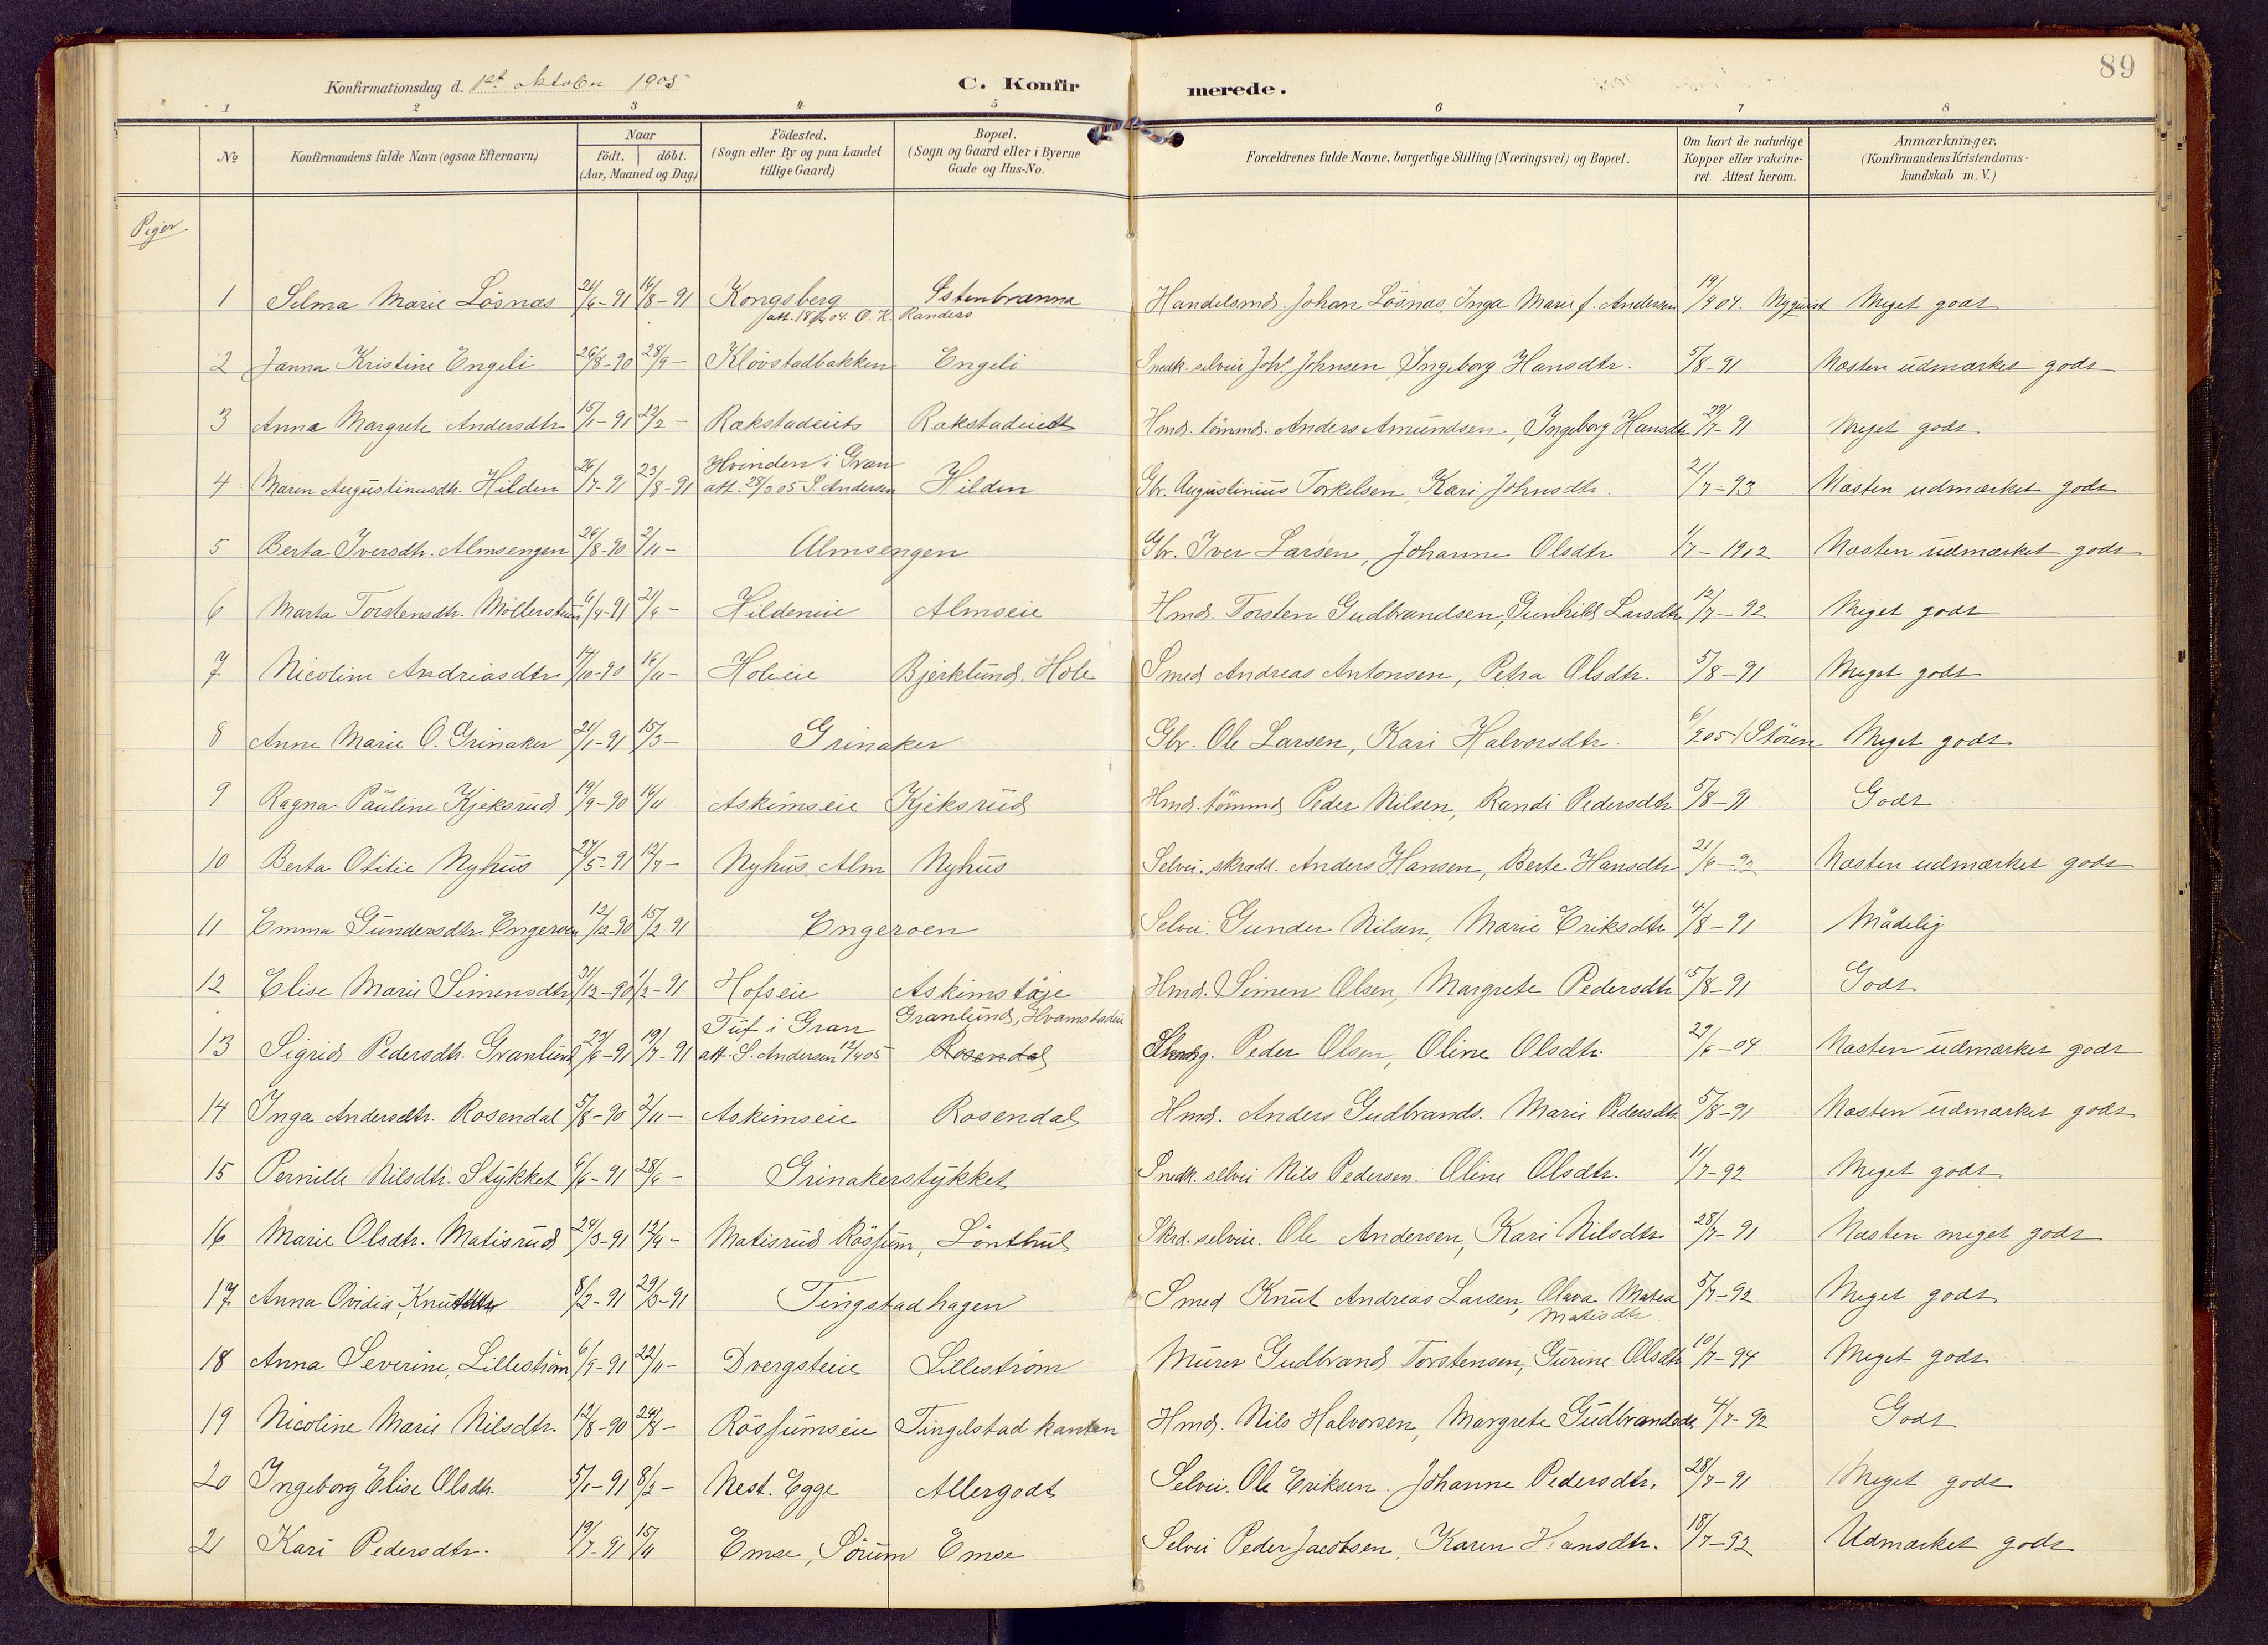 89
Konfirmationsdag d. 1st oktober 1905
C. Konfirmerede.
1 2 3 4 5 6 7 8
No
Konfirmandens fulde Navn (ogsaa Efternavn)
Naar
födt. döbt.
(Aar, Maaned og Dag)
Födested.
(Sogn eller By og paa Landet
tillige Gaard)
Bopæl.
(Sogn og Gaard eller i Byerne
Gade og Hus-No.
Forældrenes fulde Navne, borgerlige Stilling (Næringsvei) og Bopæl.
Om havt de naturlige
Kopper eller vakcine-
ret Attest herom.
Anmærkninger.
(Konfirmandens Kristendoms-
kundskab m. V.)
Piger
1 Selma Marie Lösnæs 21/6-91 16/8-91 Kongsberg Östenbrænna Handelsmd. Johan Lösnæs, Inga Marie f. Andersen 19/4 04. Nyquist Meget godt
att. 18/4 04 O. K. Randers
2 Janna Kristine Engeli 26/8-90 28/9- Klövstadbakken Engeli Snedk. selveier Johs Johnsen Ingeborg Hansdtr. 5/8-91 Næsten udmærket godt
3 Anna Margrete Andersdtr. 15/1-91 22/2- Rækstadeiet Rækstadeiet Hmd. tömmd. Anders Amundsen, Ingeborg Hansdtr 29/7-91 Meget godt
Hvinden i Gran
4 Maren Augustinusdtr. Hilden 26/7-91 23/8-91 att. 28/3 05 S. Andersen Hilden Gbr. Augustinius Torkelsen, Kari Johnsdtr. 21/7-93 Næsten udmærket godt
5 Berta Iversdtr. Almsengen 26/8-90 2/11- Almsengen Gbr. Iver Larsen, Johanne Olsdtr 1/7-1902 Næsten udmærket godt
6 Marta Torstensdtr. Möllerstuen 6/4-91 21/6- Hildeneie Almseie Hmd. Torsten Gudbrandsen, Gunhild Larsdtr 12/7-92 Meget godt
7 Nicoline Andreasdtr 14/10-90 16/11- Holeeie Bjerklund, Hole Smed Andreas Antonsen, Petra Olsdtr. 5/8-91 Meget godt
8 Anne Marie O. Grinaker 21/1-91 15/3- Grinaker Gbr. Ole Larsen, Kari Halvorsdtr. 6/2 05 Stören Meget godt
9 Ragna Pauline Kjeksrud 19/9-90 16/11 Askimseie Kjeksrud Hmd. tömmd Peder Nilsen, Randi Pedersdtr 5/8-91 Godt
10 Berta Otilie Nyhus 27/5-91 12/7- Nyhus, Alm Nyhus Selvei. skrædd. Anders Hansen, Berte Hansdtr 21/6-92 Næsten udmærket godt
11 Emma Gundersdtr. Engeroen 12/12-90 15/2 91 Engeroen Selvei. Gunder Nilsen, Marie Eriksdtr 4/8-91 Mådelig
12 Elise Marie Simensdtr 31/12-90 1/2-91 Hofseie Askimstöje Hmd. Simen Olsen, Margrete Pedersdtr 5/8-91 Godt
Tuf i Gran Granlund, Hvamstadeie
13 Sigrid Pedersdtr. Granlund 29/6-91 19/7-91 att S. Andersen 12/4 05 Rosendal Peder Olsen, Oline Olsdtr. 29/6-04 Næsten udmærket godt
14 Inga Andersdtr. Rosendal 5/8-90 2/11- Askimseie Rosendal Hmd. Anders Gudbrands. Marie Pedersdtr. 5/8-91 Næsten udmærket godt
15 Pernille Nilsdtr. Stykket 6/6-91 28/6- Grinakerstykket Snedk. selvei Nils Pedersen. Oline Olsdtr. 11/7-92 Meget godt
16 Marie Olsdtr. Matisrud 24/3-91 12/4- Matisrud Rössum, Lönthul Skrd. selveie. Ole Andersen, Kari Nilsdtr 28/7-91 Næsten meget godt
17 Anna Ovidia, Knutsdtr 8/2-91 29/3-91 Tingstadhagen Smed Knut Andreas Larsen, Olava Matea 5/7-92 Meget godt
Matisdtr.
18 Anna Severine, Lilleström 6/9-91 22/11- Dvergsteie Lilleström Murer Gudbrand Torstensen, Gurine Olsdtr 10/7-94 Meget godt
19 Nicoline Marie Nilsdtr. 12/8-90 24/8- Rössumseie Tingelstad kanten Hmd. Nils Halvorsen, Margrete Gudbrandsdr 4/7-92 Godt
20 Ingeborg Elise Olsdtr. 5/1-91 8/2- Nest. Egge Allergodt Selvei. Ole Eriksen. Johanne Pedersdtr. 28/7-91 Meget godt
21 Kari Pedersdtr. 19/7-91 15/11 Emse, Sörum Emse Selvei Peder Jacobsen, Karen Hansdtr. 18/7-92 Udmærket godt